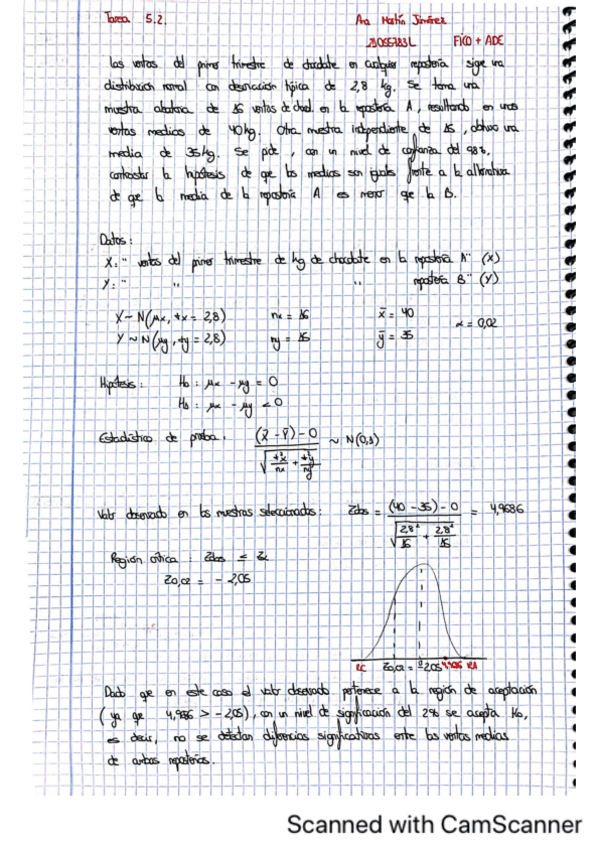 Tarea 5.2.
Ana Martín Jiménez
FICO + ADE
Las ventas del primer trimestre de chocolate en cualquier repostería sige una
distribución normal con desviación típica de 2,8 kg. Se toma una
muestra aleatoria de 16 ventas de choc. en la repostería A, resultando en unas
ventas medias de 40 kg. Otra muestra independiente de 16, obtuvo una
media de 35 kg. Se pide, con un nivel de confianza del 98%,
contrastar la hipótesis de que las medias son iguales frente a la alternativa
de que la media de la repostería A es menor que la B.
Datos:
X: "ventas del primer trimestre de kg de chocolate en la repostería A" (X)
Y: " " " repostería B" (Y)
X ~ N(μx, σx = 2,8) nx = 16 x̄ = 40
α = 0,02
Y ~ N(μy, σy = 2,8) ny = 16 ȳ = 35
Hipótesis: H0: μx - μy = 0
μx - μy < 0
Estadístico de prueba: (x̄ - ȳ) - 0 / √(σ²x/nx + σ²y/ny) ~ N(0,1)
Valor observado en las muestras seleccionadas: Zobs = (40 - 35) - 0 / √(2,8²/16 + 2,8²/16) = 4,9686
Región crítica: Zobs ≤ Zα
Z0,02 = - 2,05
RC Z0,02 = -2,05 RA
Dado que en este caso el valor observado pertenece a la región de aceptación
(ya que 4,986 > - 2,05), con un nivel de significación del 2% se acepta H0,
es decir, no se detectan diferencias significativas entre las ventas medias
de ambas reposterías.
Scanned with CamScanner